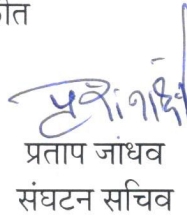 प्रताप जांधव
संघटन सचिव